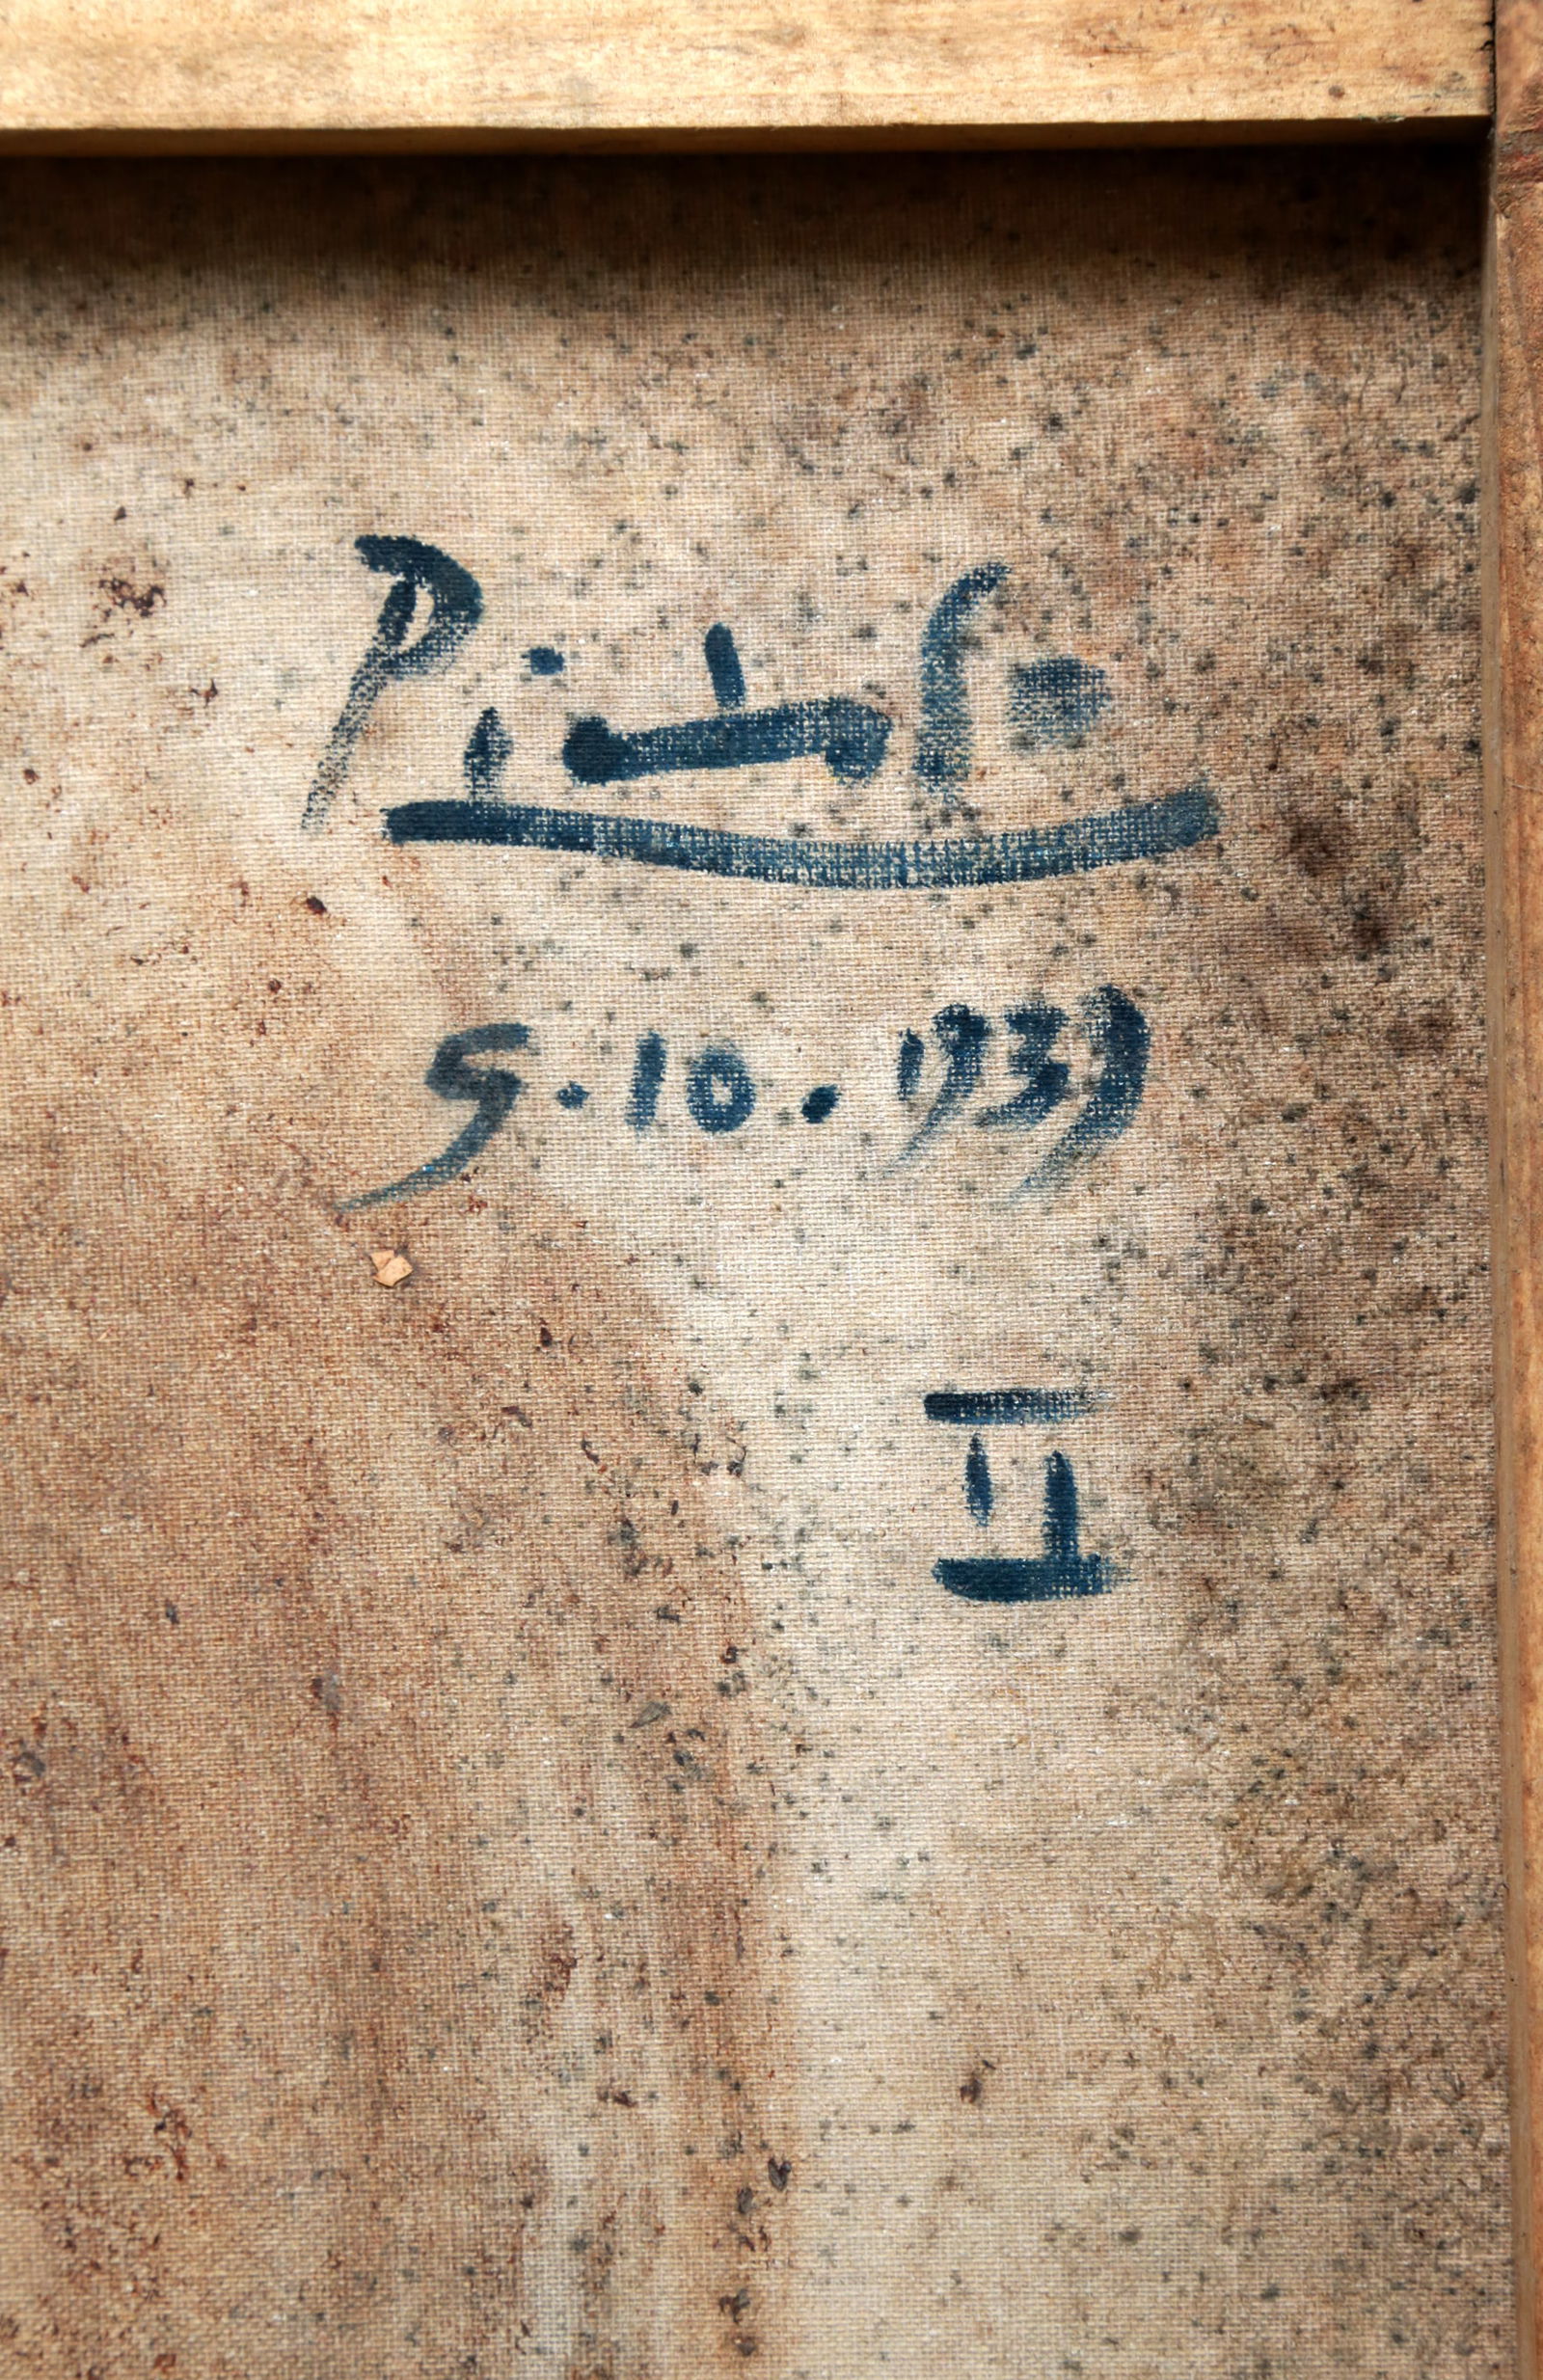 Picasso
5.10.1939
II